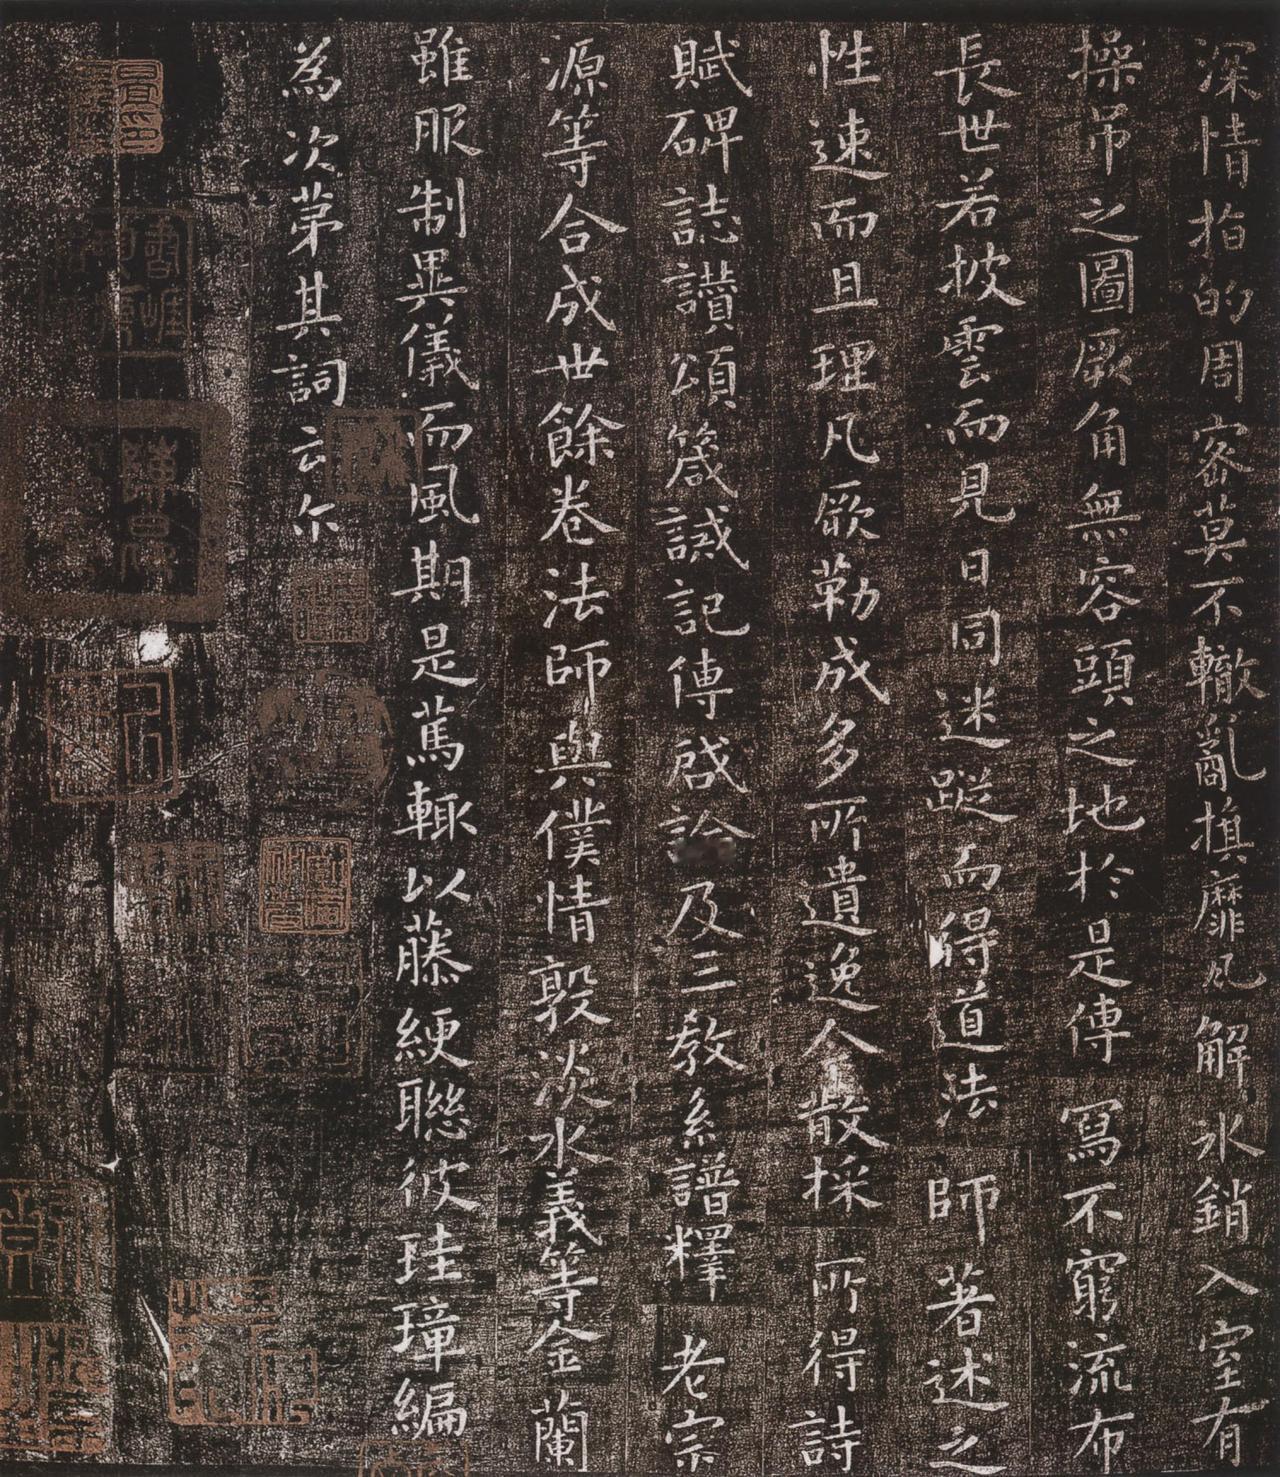 深情指的周密莫不轍亂旗靡凡解氷銷入室有
操弔之圖厥角無容頭之地於是傳寫不窮流布
長世若披雲而見日同迷蹤而得道法師著述之
性速而且理凡厥勒成多所遺逸人散採所得詩
賦碑誌讃頌箴誡記傳啓論及三教系譜釋老宗
源等合成世餘卷法師與僕情敦淡水義等金蘭
雖服制異儀而風期是篤輒以藤綆聯彼珪璋編
為次第其詞云尒